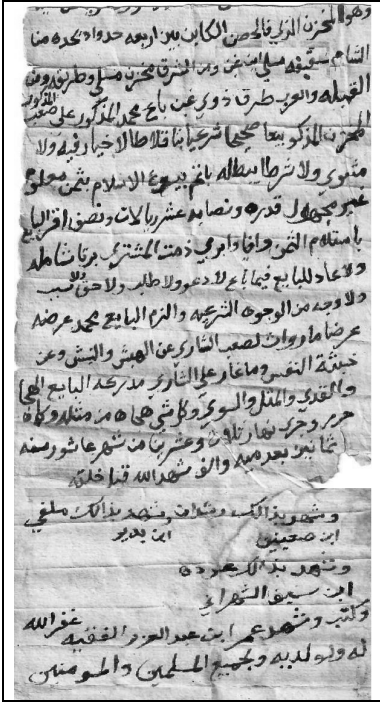 وهو المخزن الذي في الحصن الكاين بين اربعه حدود يحده منا
الشام سقيفه مسلي ابن غنى ومن الشرق مخزن مسلي وطريقه ومن
القبله والغرب طرق ذوي غنى باع محمد المذكور على صعيب المذكور
المخزن المذكور بيعا صحيحا شرعيا بتا قلاطا لا خيار فيه ولا
مثنوي ولا شرطا يبطله باتم بيوع الاسلام بثمن معلوم
غير مجهول قدره ونصابه عشر ريالات ونصف اقر البايع
باستلام الثمن وافيا وابرى ذمت المشتري برتا شامله
ولا عاد للبايع فيما باع لا دعو ولا طلب ولا حق ولا سبب
ولا وجه من الوجوه الشرعيه والزم البايع محمد عرضه
عرضا ما روات لصعب الشاري عن الهبش والنبش وعن
خبثة النفس وما غار علي الشاري مدرعه البايع
والقدي والمثل والسوي
حرير وجرى نهار ثلاوث وعشرين من شهر عاشور سنه
ثمانين بعد ميه والف شهد الله قبل خلقه
وشهد بذالك وشهد بذالك ملفي
ابن صعينين ابن بديو
وشهد بذالك عوده
ابن سيف
وكتب وشهد عمر ابن عبد العزيز الفقيه غفر الله
له ولوالديه ولجميع المسلمين والمومنين